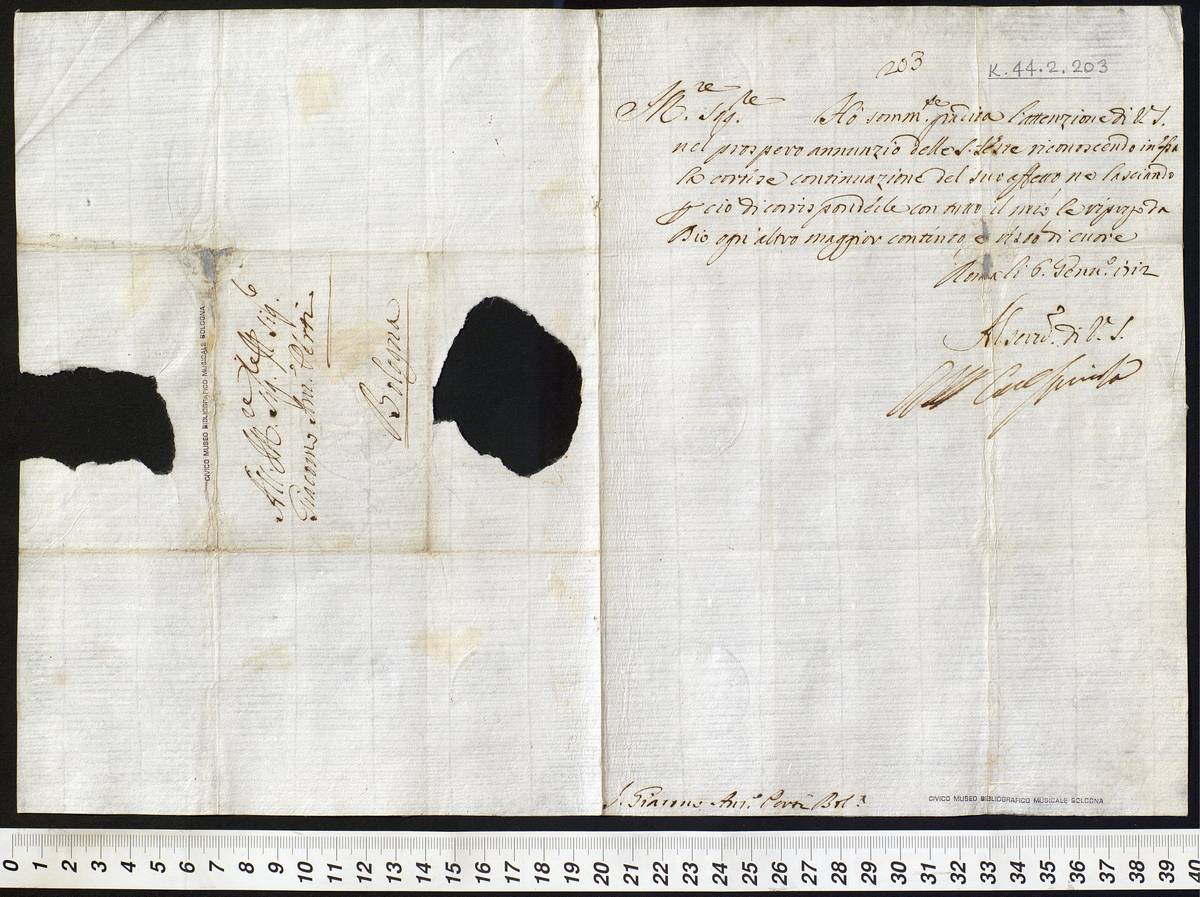 203
K.44.2.203
M.re Sig.re Hò somm.te gradita l'attenzione di V.S.
nel prospero annunzio delle S. feste riconoscendo in
la cortese continuazione del suo affetto ne lasciando
ciò di corrisponderle con tutto il mio le
Dio ogn'altro maggior contento, e resto di cuore
Roma li 6. Genn.o 1712
Al serv.o di V.S.
All' M. re Sig. Sig.
Giacomo Ant.o Perti
Bologna
S. Giacomo Ant.o Perti Bol.a
CIVICO MUSEO BIBLIOGRAFICO MUSICALE BOLOGNA
CIVICO MUSEO BIBLIOGRAFICO MUSICALE BOLOGNA
0 1 2 3 4 5 6 7 8 9 10 11 12 13 14 15 16 17 18 19 20 21 22 23 24 25 26 27 28 29 30 31 32 33 34 35 36 37 38 39 40